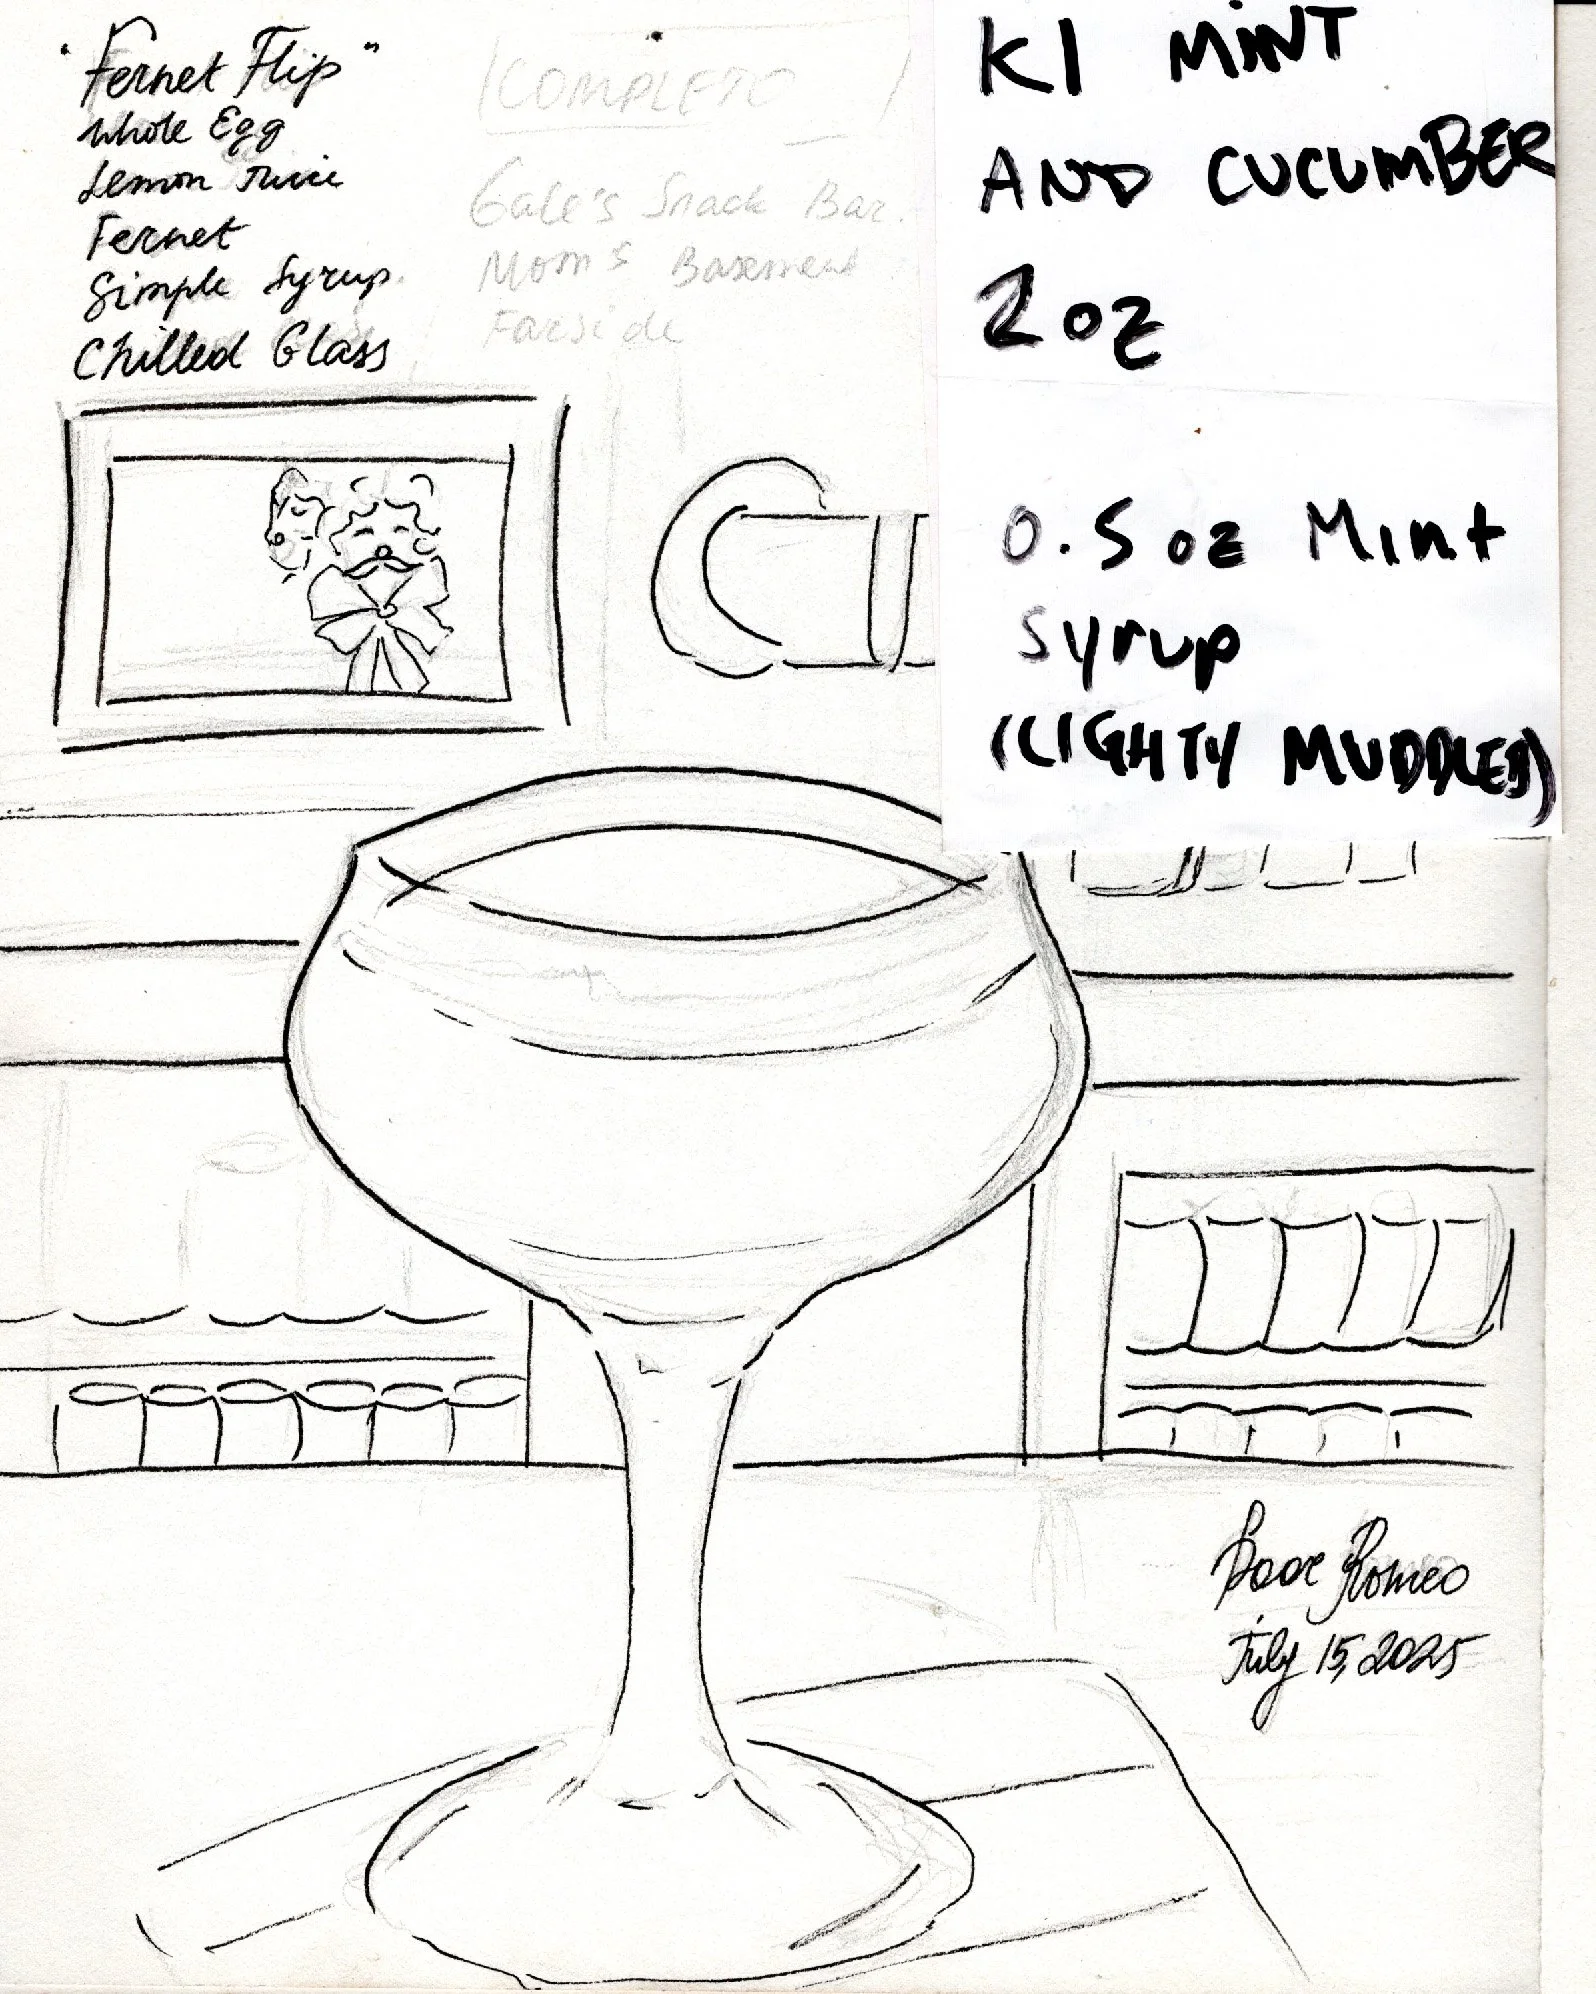 "Fernet Flip"
Whole Egg
Lemon Juice
Fernet
Simple Syrup.
Chilled Glass
(COMPLETO)
Gale's Snack Bar.
Mom's Basement
Farside
K1 MINT
AND CUCUMBER
2oz
0.5 oz Mint
syrup
(LIGHTY MUDDLED)
Romeo
July 15, 2025